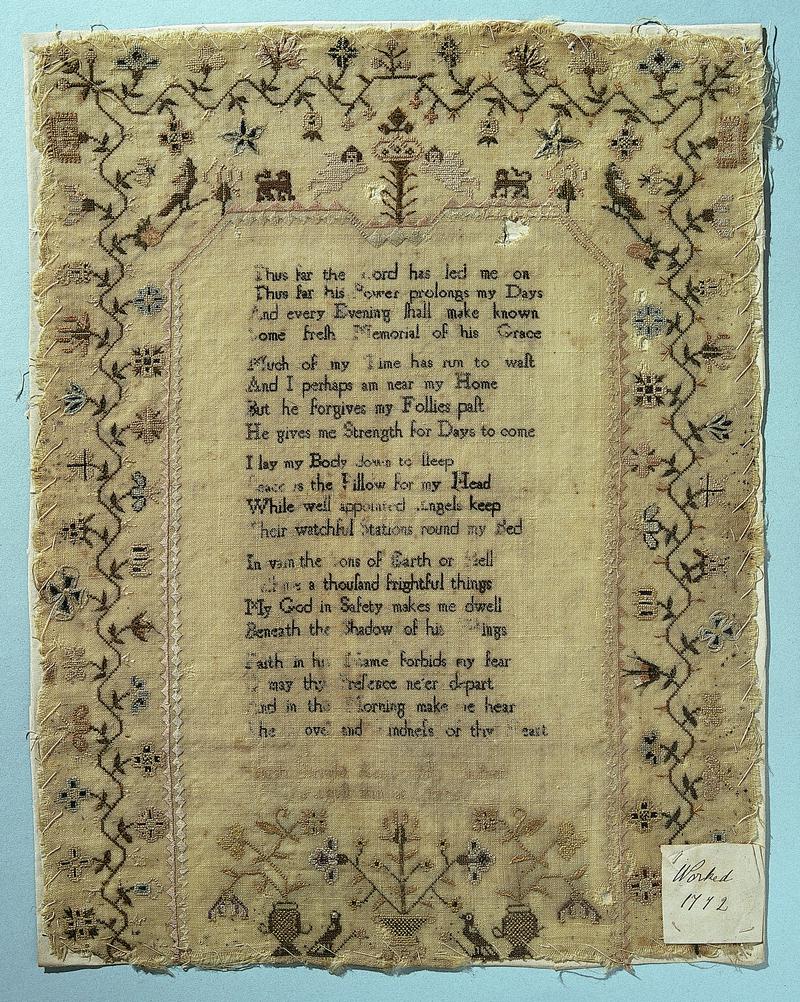 Thus far the Lord has led me on
Thus far his Power prolongs my Days
And every Evening ſhall make known
Some freſh Memorial of his Grace
Much of my Time has run to waſt
And I perhaps am near my Home
But he forgives my Follies paſt
He gives me Strength for Days to come
I lay my Body down to ſleep
Peace is the Pillow for my Head
While well appointed Angels keep
Their watchful Stations round my Bed
In vain the Sons of Earth or Hell
Tell me a thouſand frightful things
My God in Safety makes me dwell
Beneath the Shadow of his Wings
Faith in his Name forbids my fear
O may thy Preſence ne'er depart
And in the Morning make me hear
The Love and Kindneſs of thy Heart
Worked
1772